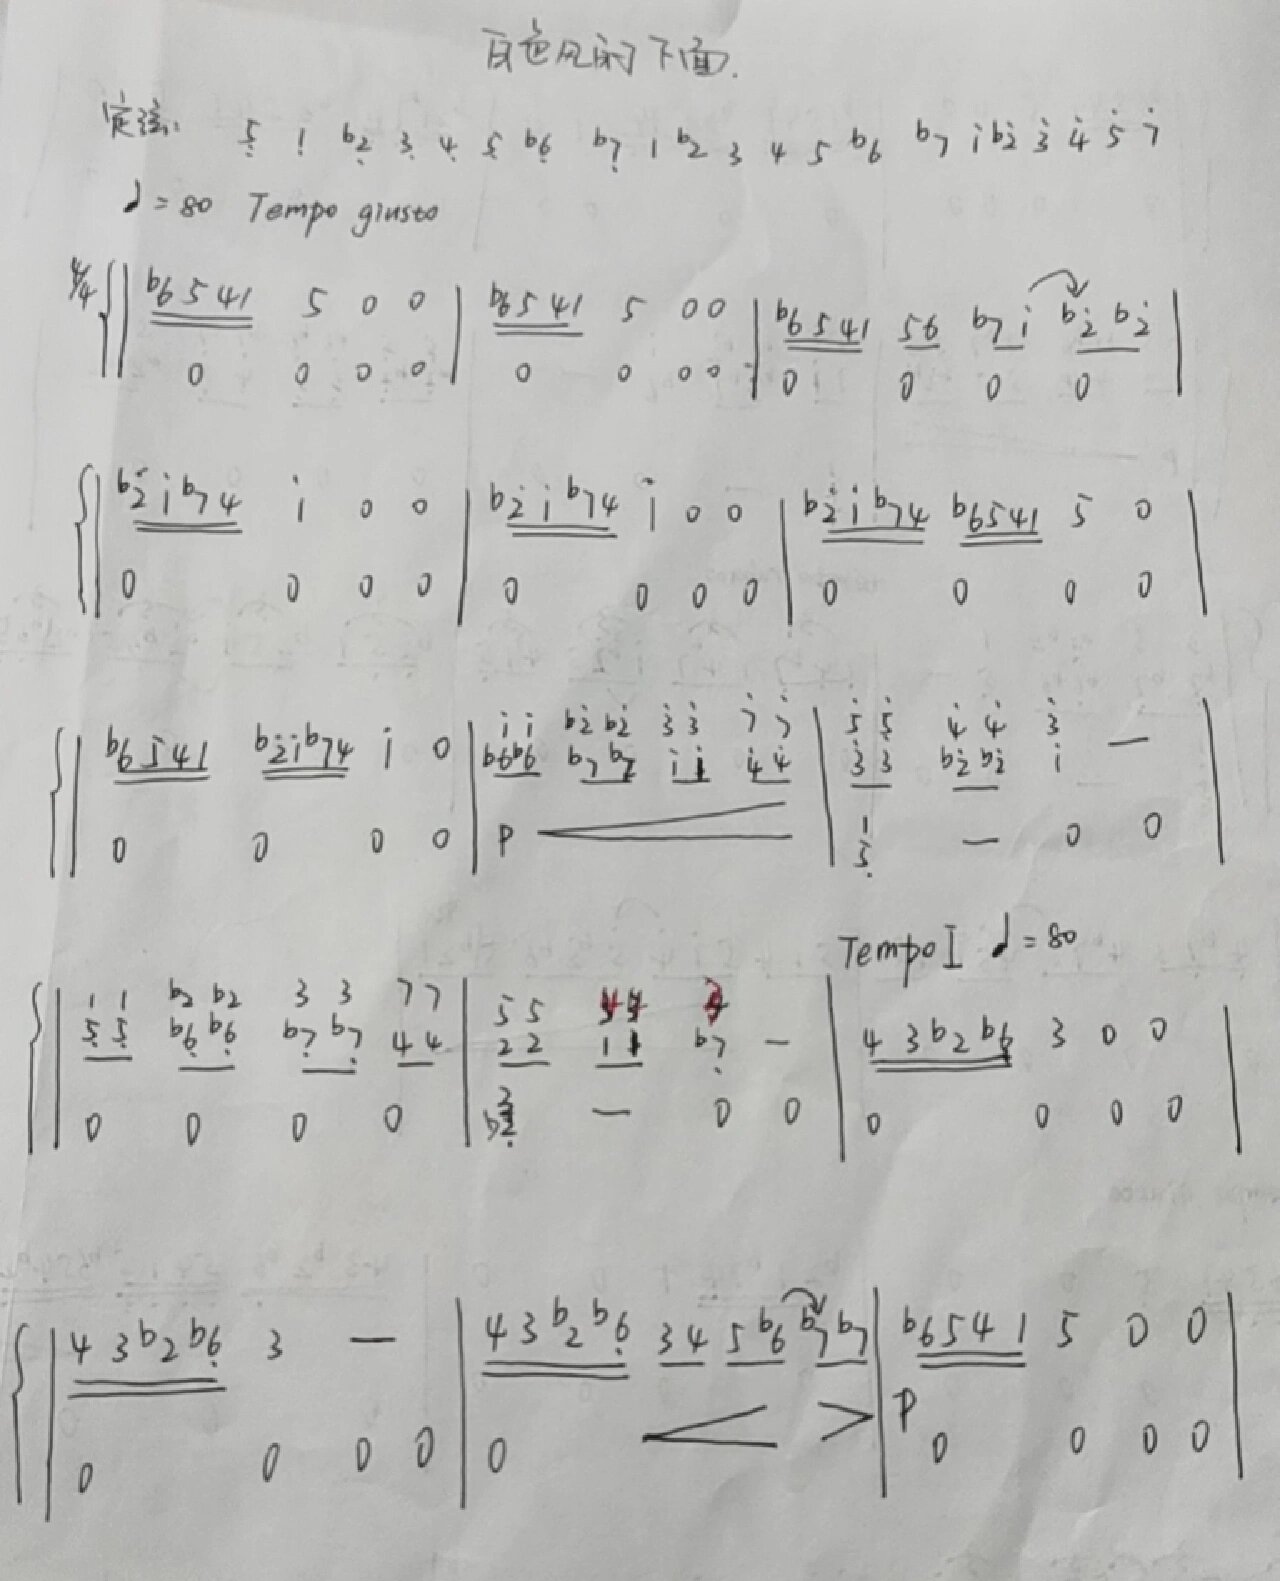 白色风的下面.
定弦: 5̣ 1̣ b2̣ 3̣ 4̣ 5̣ b6̣ b7̣ 1 b2 3 4 5 b6 b7 1̇ b2̇ 3̇ 4̇ 5̇ 7̇
♩=80 Tempo giusto
4/4 b6 5 4 1 5 0 0 | b6 5 4 1 5 0 0 | b6 5 4 1 5 6 b7 1̇ b2̇ b2̇ |
0 0 0 0 | 0 0 0 0 | 0 0 0 0 |
b2̇ 1̇ b7 4 1̇ 0 0 | b2̇ 1̇ b7 4 1̇ 0 0 | b2̇ 1̇ b7 4 b6 5 4 1 5 0 |
0 0 0 0 | 0 0 0 0 | 0 0 0 0 |
1̇ 1̇ b2̇ b2̇ 3̇ 3̇ 7̇ 7̇ | 5̇ 5̇ 4̇ 4̇ 3̇ — |
b6 5 4 1 b2̇ 1̇ b7 4 1̇ 0 | b6 b6 b7 b7 1̇ 1̇ 4̇ 4̇ | 3̇ 3̇ b2̇ b2̇ 1̇
0 0 0 0 | P | 1 — 0 0 |
5̣
Tempo I ♩=80
1 1 b2 b2 3 3 7 7 | 5 5
5̣ 5̣ b6̣ b6̣ b7̣ b7̣ 4 4 | 2 2 1 1 b7̣ — | 4 3 b2 b6̣ 3 0 0 |
0 0 0 0 | — 0 0 | 0 0 0 0 |
4 3 b2 b6̣ 3 — | 4 3 b2 b6̣ 3 4 5 b6 b7 b7 | b6 5 4 1 5 0 0 |
P
0 0 0 0 | 0 | 0 0 0 0 |